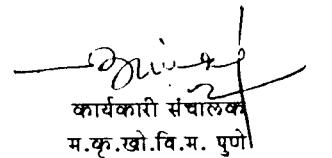 कार्यकारी संचालक
म.कृ.खो.वि.म. पुणे